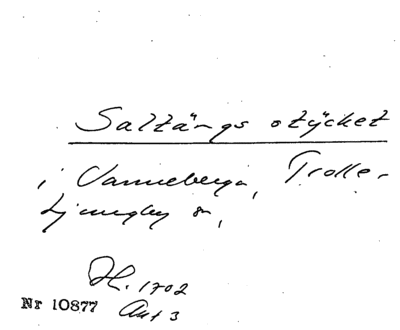 Saltängs stÿcket
i Vanneberga, Trolle-
Ljungby sn,
H. 1702
Nr 10877 Akt 3